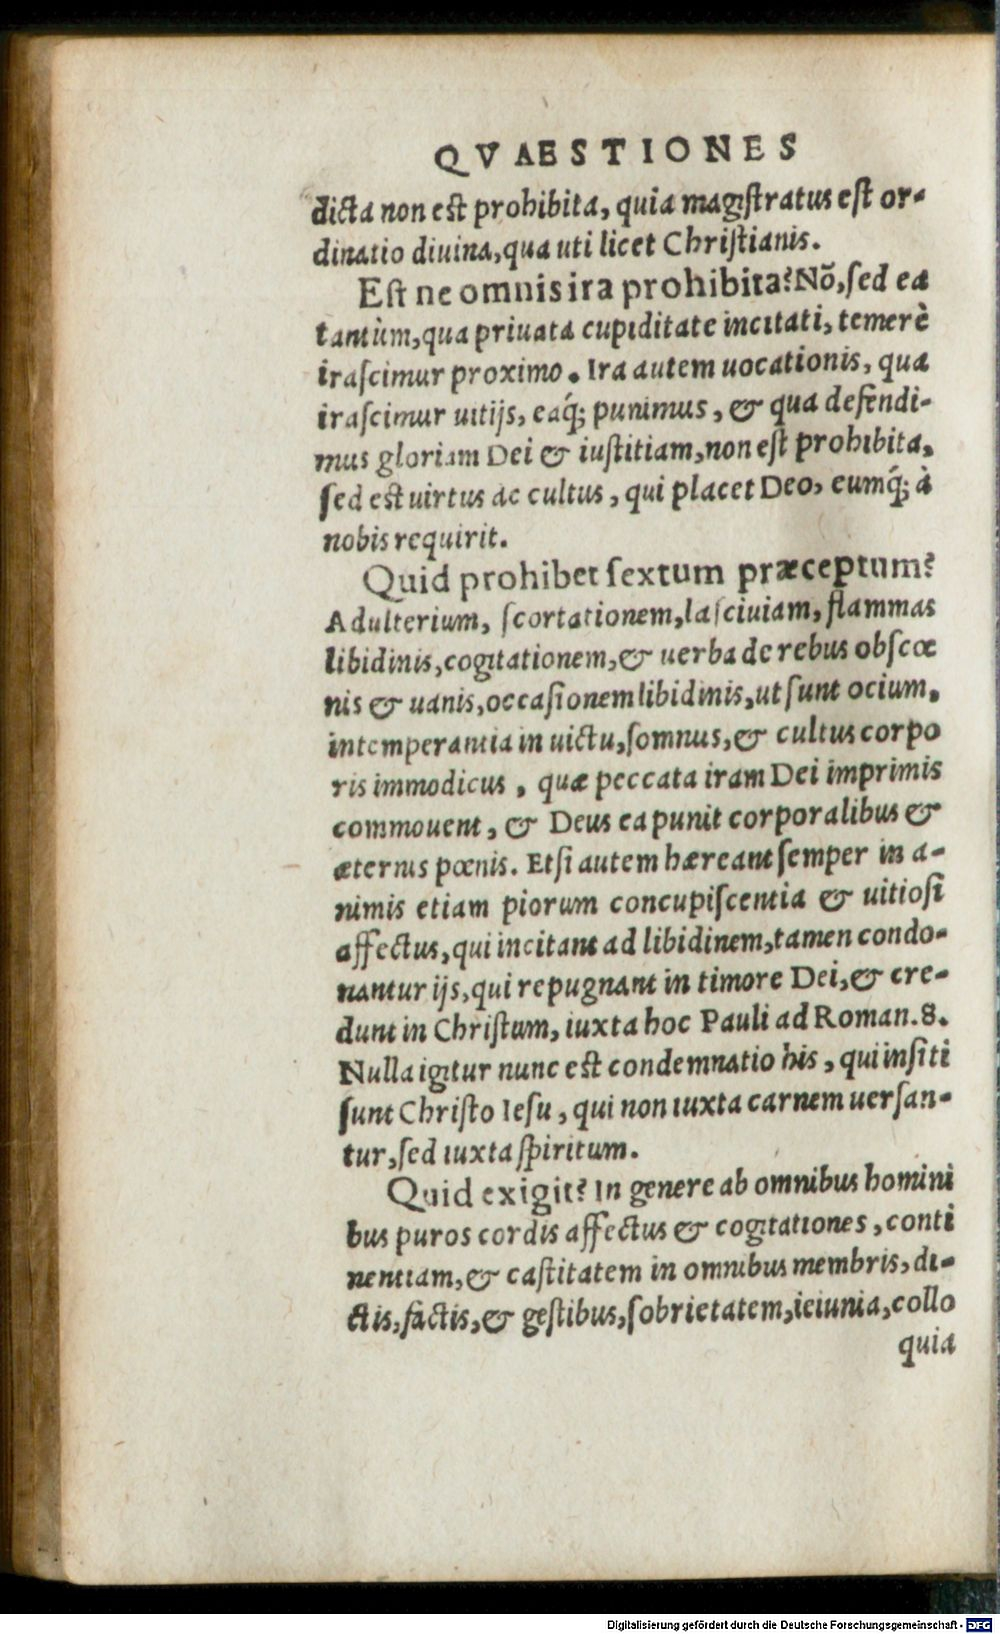 QVAESTIONES
dicta non est prohibita, quia magiſtratus eſt or-
dinatio diuina, qua uti licet Chriſtianis.
Eſt ne omnis ira prohibita? Nõ, ſed ea
tantùm, qua priuata cupiditate incitati, temerè
iraſcimur proximo. Ira autem uocationis, qua
iraſcimur uitijs, eaq́; punimus, & qua defendi-
mus gloriam Dei & iuſtitiam, non eſt prohibita,
ſed est uirtus ac cultus, qui placet Deo, eumq́; à
nobis requirit.
Quid prohibet ſextum præceptum?
Adulterium, ſcortationem, laſciuiam, flammas
libidinis, cogitationem, & uerba de rebus obſcœ
nis & uanis, occaſionem libidinis, ut ſunt ocium,
intemperantia in uictu, ſomnus, & cultus corpo
ris immodicus, quæ peccata iram Dei imprimis
commouent, & Deus ea punit corporalibus &
æternis pœnis. Etſi autem hæreant ſemper in a-
nimis etiam piorum concupiſcentia & uitioſi
affectus, qui incitant ad libidinem, tamen condo-
nantur ijs, qui repugnant in timore Dei, & cre-
dunt in Chriſtum, iuxta hoc Pauli ad Roman. 8.
Nulla igitur nunc est condemnatio his, qui inſiti
ſunt Chriſto Ieſu, qui non iuxta carnem uerſan-
tur, ſed iuxta ſpiritum.
Quid exigit? In genere ab omnibus homini
bus puros cordis affectus & cogitationes, conti
nentiam, & caſtitatem in omnibus membris, di-
ctis, factis, & geſtibus, ſobrietatem, ieiunia, collo
quia
Digitalisierung gefördert durch die Deutsche Forschungsgemeinschaft - DFG